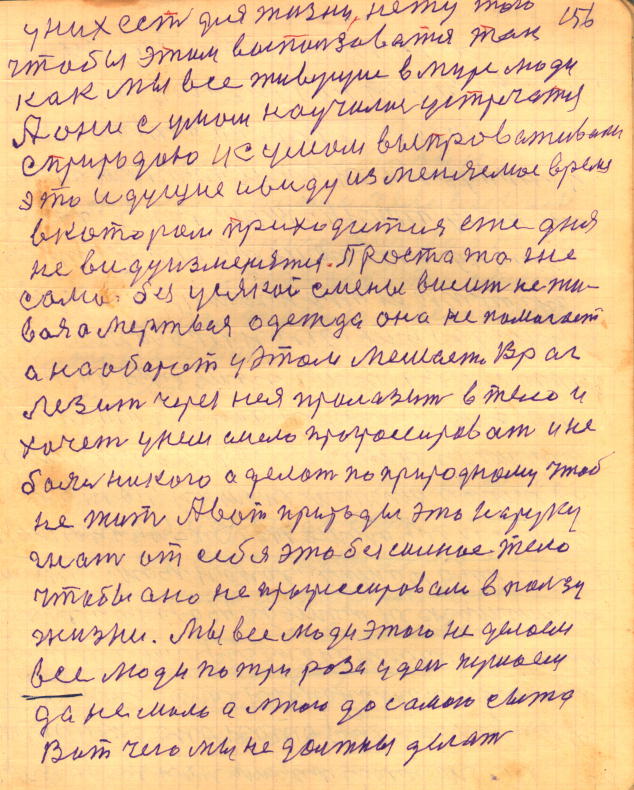 у них ест для жизни, нету того 156
чтобы этом воспользоватя так
как мы все живущие в мире люди
А они с умом научилис устречатя
с природою и с умом выпроваживали
это идущие и виду изменяемое время
в котором приходится
не видуизменятя. Проста та же
само. без усякой смены висит не жи-
вая а мертвая одежда она не помагает
а наобарот у этом мешает. Враг
лезит через нея пролазит в тело и
хочет у нем смело прогрессироват и не
боятя никого а делат по природному чтоб
не жит А вот природы это на руку
гнат от себя это бессилное тело
чтобы ано не прогрессировало в ползу
жизни. Мы все люди этого не делаем
все люди по три роза у ден кушаем
да не мало а много до самого сыта
Вот чего мы не должны делат